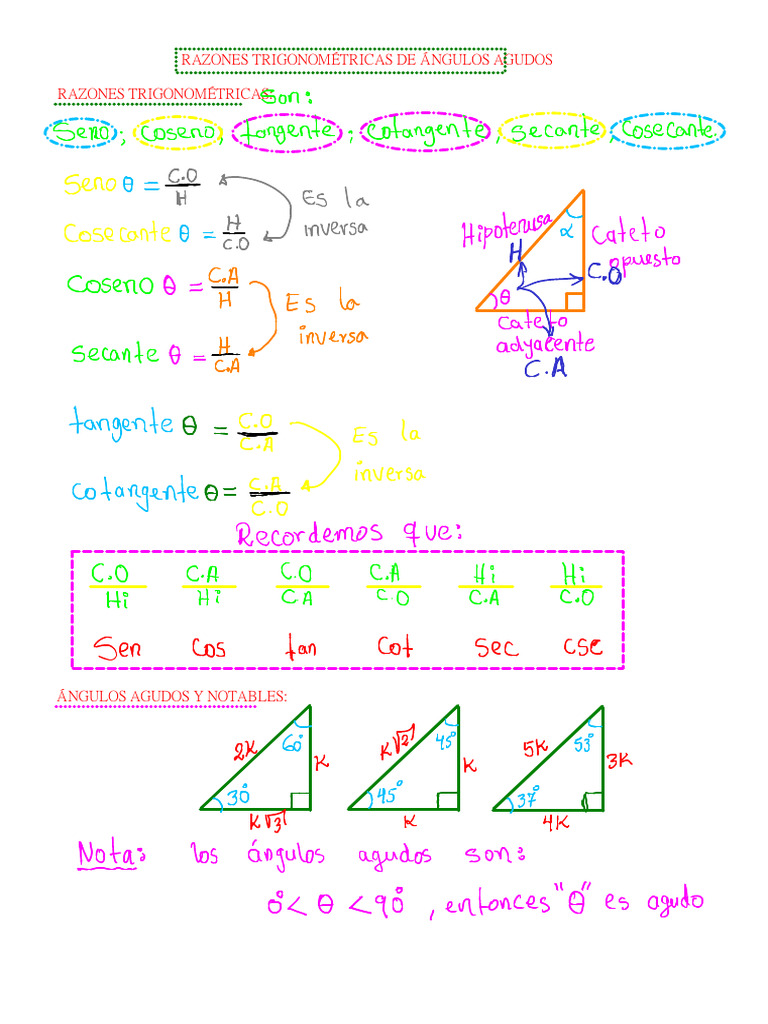 RAZONES TRIGONOMÉTRICAS DE ÁNGULOS AGUDOS
RAZONES TRIGONOMÉTRICAS: son:
Seno; coseno, tangente; cotangente, secante, cosecante.
Seno θ = C.O / H
Cosecante θ = H / C.O
Es la
inversa
Coseno θ = C.A / H
secante θ = H / C.A
Es la
inversa
Hipotenusa
H
α
Cateto
opuesto
C.O
θ
Cateto
adyacente
C.A
tangente θ = C.O / C.A
cotangente θ = C.A / C.O
Es la
inversa
Recordemos que:
C.O / Hi C.A / Hi C.O / C.A C.A / C.O Hi / C.A Hi / C.O
Sen Cos tan Cot sec csc
ÁNGULOS AGUDOS Y NOTABLES:
2K 60° K 30° K√3
K√2 45° K 45° K
5K 53° 3K 37° 4K
Nota: los ángulos agudos son:
0° < θ < 90°, entonces "θ" es agudo